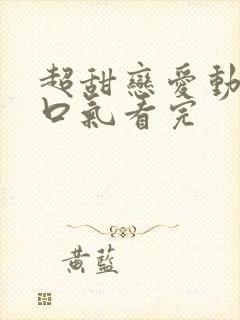 超甜戀愛動
口氣看完
黃藍